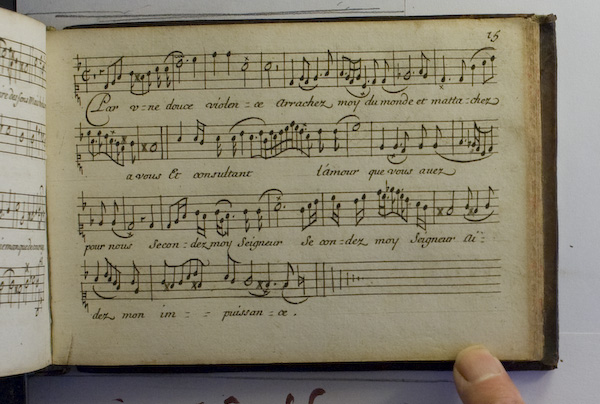 15
Par v-ne douce violen-ce Arrachez moy du monde et matta-chez
a vous Et consultant l'amour que vous auez
pour nous Secon-dez moy Seigneur Se con-dez moy Seigneur Ai-
dez mon im-- puissan-ce.